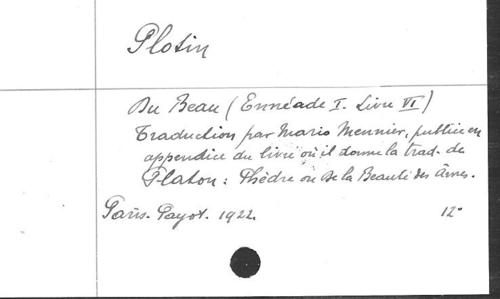 Plotin
Du Beau (Ennéade I. Livre VI)
Traduction par Mario Meunier, publiée en
appendice du livre où il donne la trad. de
Platon : Phèdre ou De la Beauté des Âmes.
Paris. Payot. 1922. 12°